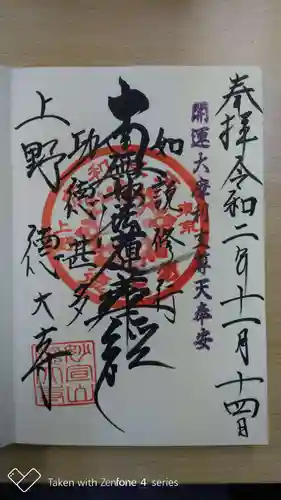 奉拝 令和二年十一月十四日
開運大摩利支尊天奉安
如説修行
南無妙法蓮華経
功徳甚多
上野 徳大寺
Taken with Zenfone 4 series